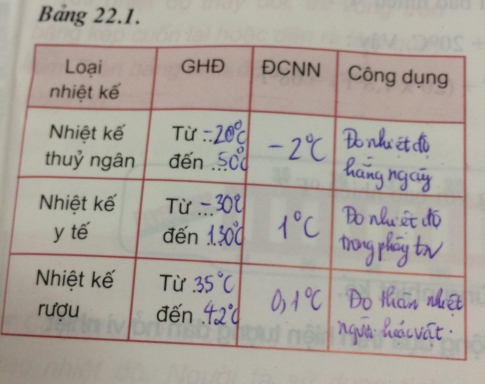 Bảng 22.1.
Loại nhiệt kế GHĐ ĐCNN Công dụng
Nhiệt kế thuỷ ngân Từ -20°C đến 50°C -2°C Đo nhiệt độ hằng ngày
Nhiệt kế y tế Từ -30°C đến 130°C 1°C Đo nhiệt độ trong phòng tn
Nhiệt kế rượu Từ 35°C đến 42°C 0,1°C Đo thân nhiệt người